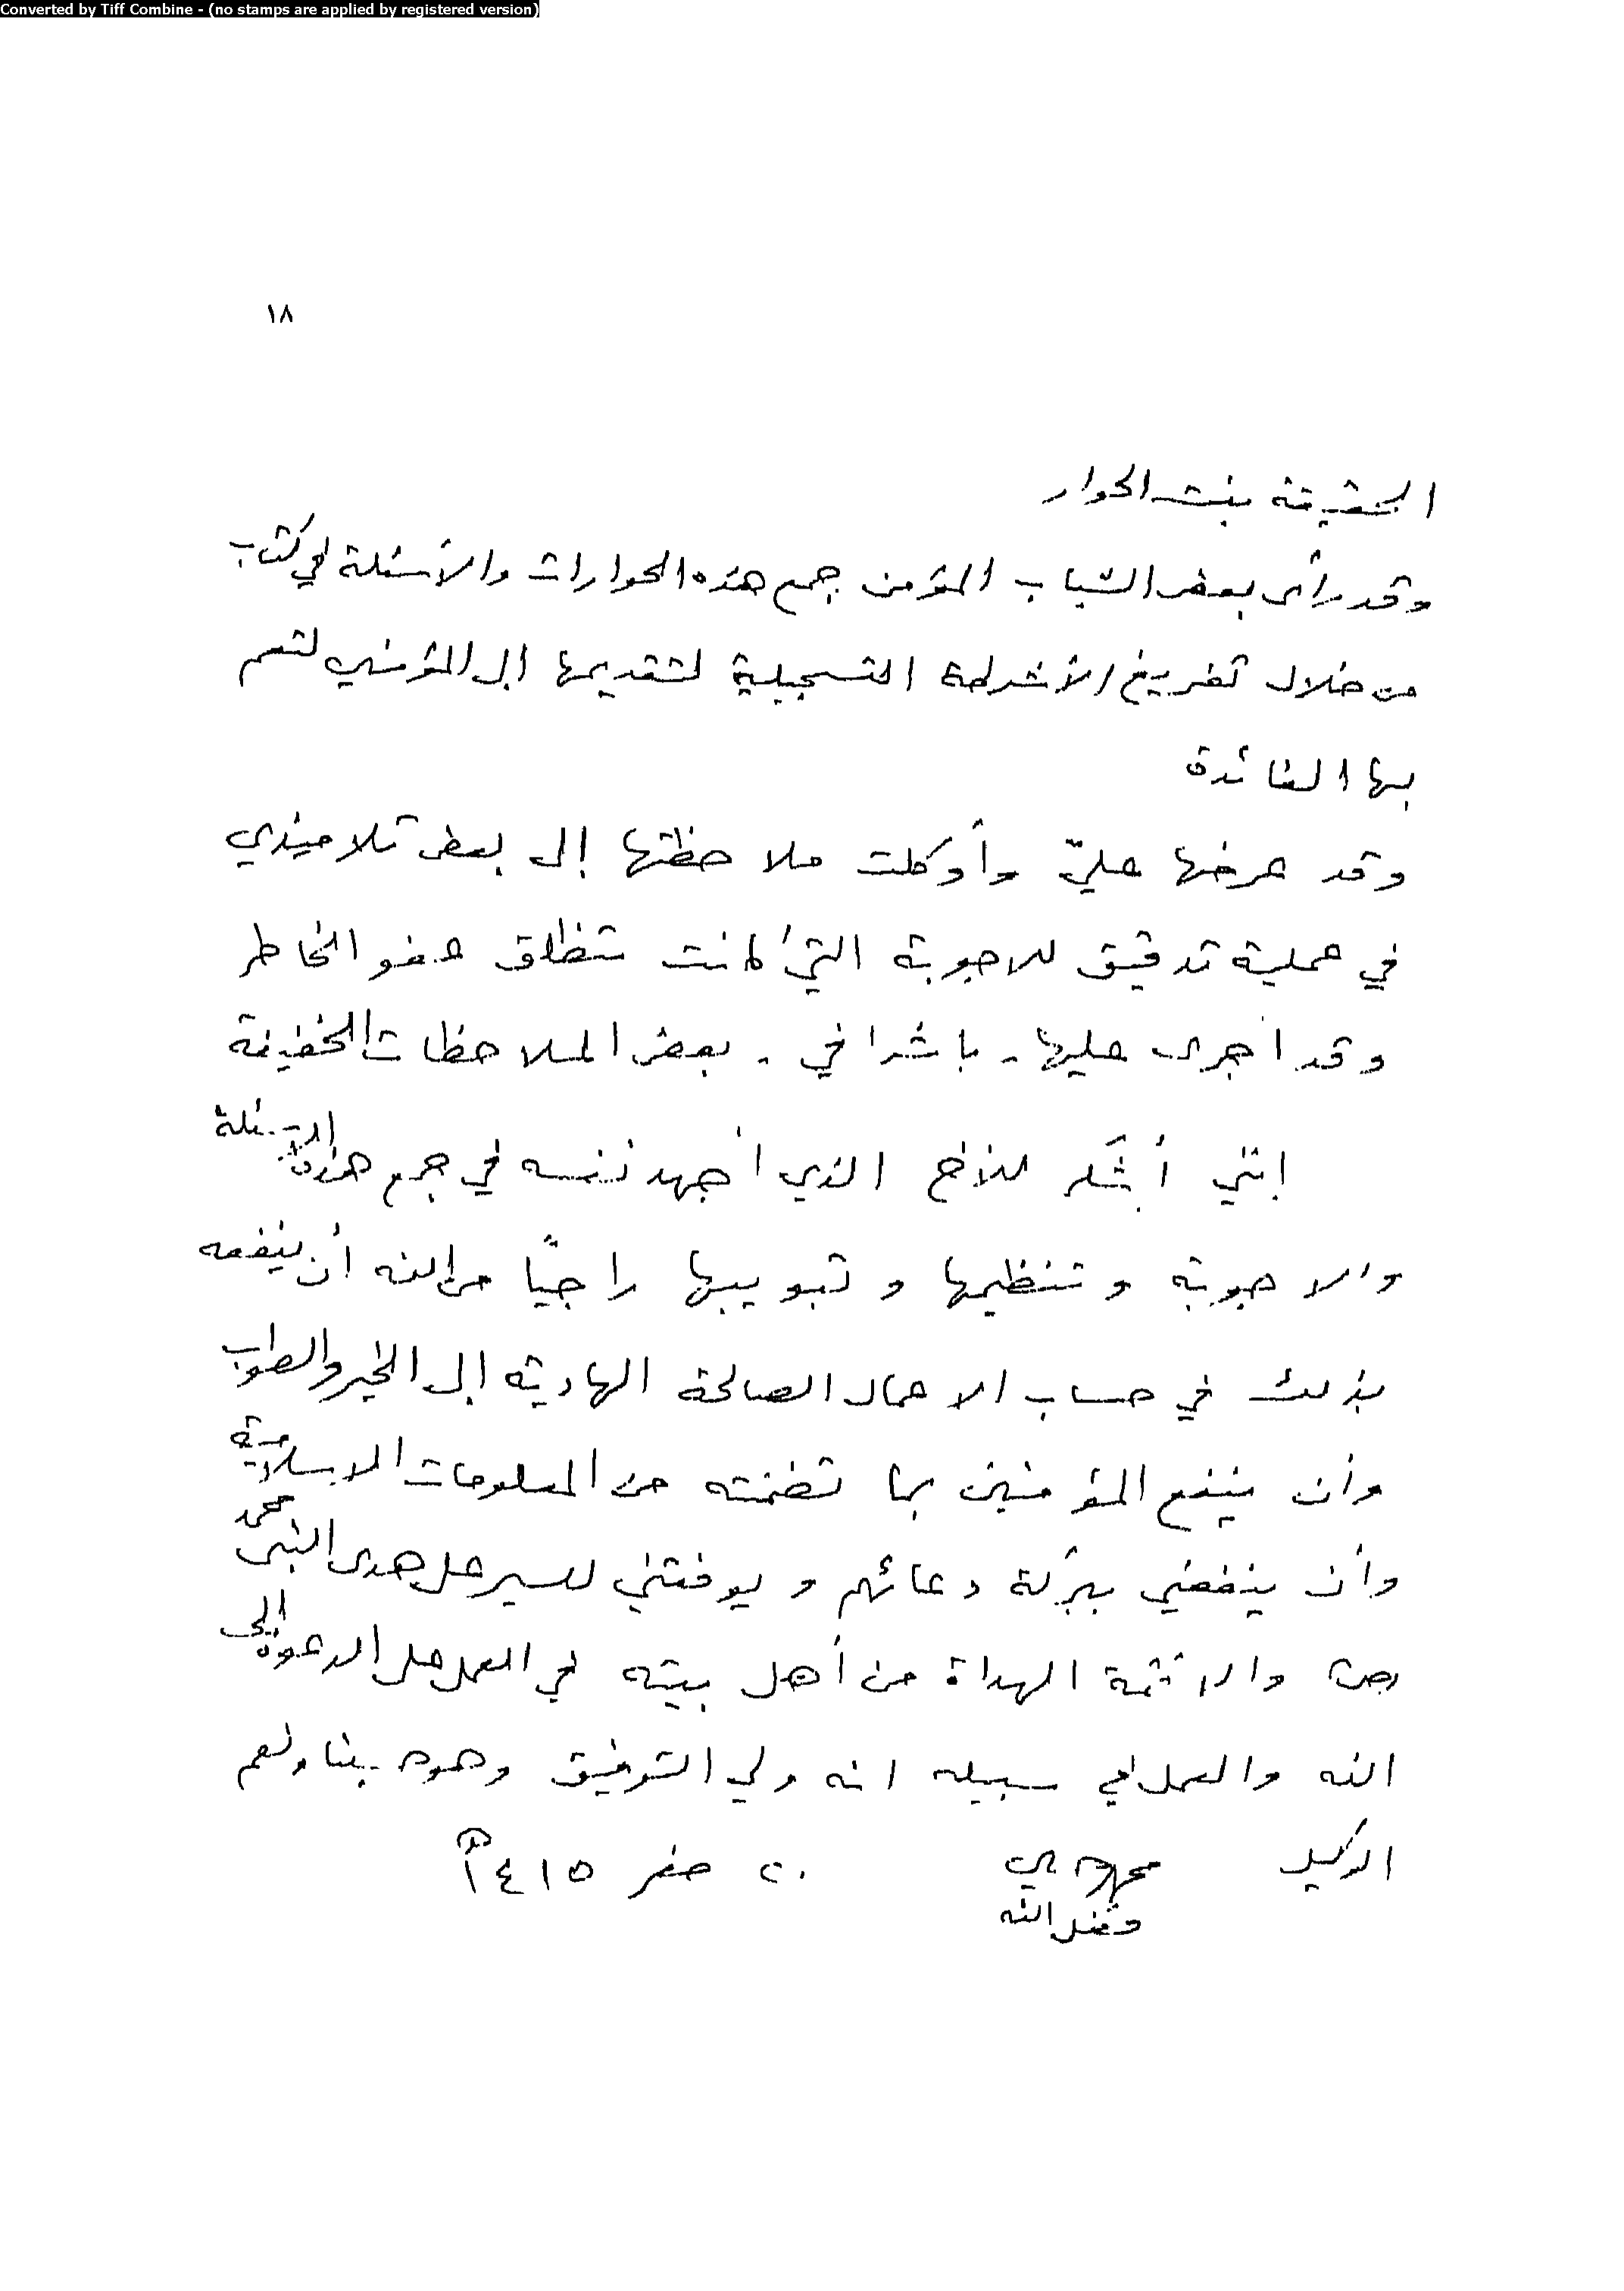 Converted by Tiff Combine - (no stamps are applied by registered version)
١٨
الحقيقة بنت الحوار
وقد رأى بعض الشباب المؤمن جمع هذه الحوارات والأسئلة في كتاب
من خلال تفريغ الأشرطة التسجيلية لتقديمها إلى المؤمنين لتعم
بها الفائدة
وقد عرضها عليّ وأوكلت ملاحظتها إلى بعض تلاميذي
في عملية تدقيق للاجوبة التي كانت تنطلق عفو الخاطر
وقد اجرى عليها - باشرافي - بعض الملاحظات الخفيفة
إنني أشكر للأخ الذي أجهد نفسه في جمع هذه الاسئلة
والاجوبة وتنظيمها وتبويبها راجيًا من الله أن ينفعه
بذلك في حساب الاعمال الصالحة الهادية إلى الخير والصواب
وأن ينفع المؤمنين بما تضمنته من المعلومات الاسلامية
وأن ينفعني ببركة دعائهم ويوفقني للسير على هدى النبي محمد
(ص) والائمة الهداة من أهل بيته في العمل على الدعوة إلى
الله والعمل في سبيله انه ولي التوفيق وهو حسبنا ونعم
الوكيل ٢٠ صفر ١٤١٥ هـ
فضل الله